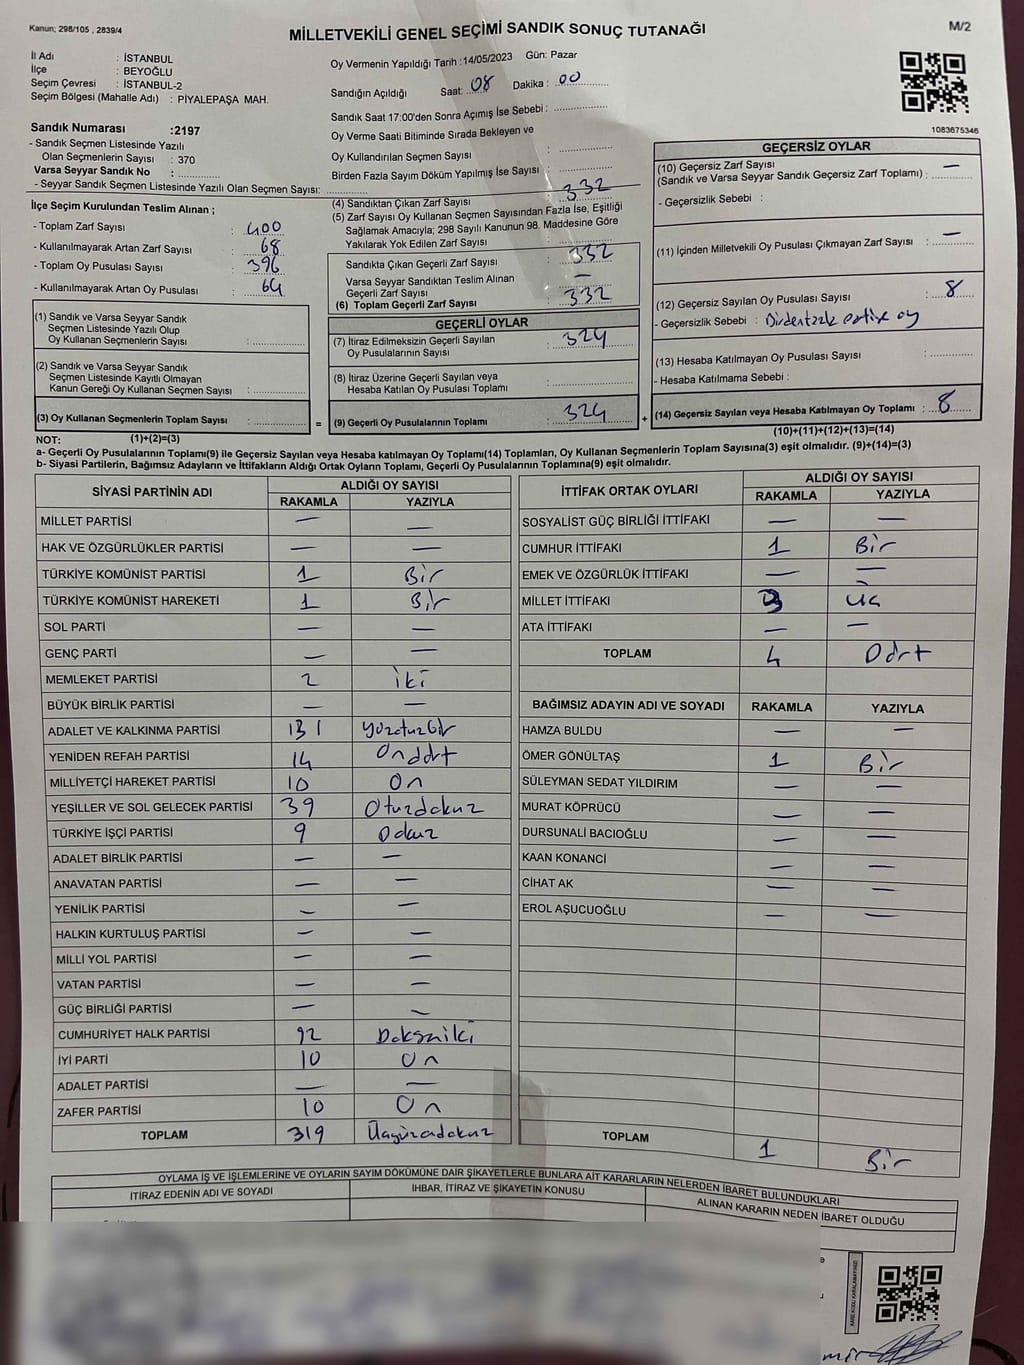 Kanun; 298/105 , 2839/4
MİLLETVEKİLİ GENEL SEÇİMİ SANDIK SONUÇ TUTANAĞI
M/2
İl Adı : İSTANBUL
İlçe : BEYOĞLU
Seçim Çevresi : İSTANBUL-2
Seçim Bölgesi (Mahalle Adı) : PİYALEPAŞA MAH.
Sandık Numarası :2197
- Sandık Seçmen Listesinde Yazılı
Olan Seçmenlerin Sayısı : 370
Varsa Seyyar Sandık No :
- Seyyar Sandık Seçmen Listesinde Yazılı Olan Seçmen Sayısı:
İlçe Seçim Kurulundan Teslim Alınan ;
- Toplam Zarf Sayısı : 400
- Kullanılmayarak Artan Zarf Sayısı : 68
- Toplam Oy Pusulası Sayısı : 396
- Kullanılmayarak Artan Oy Pusulası : 64
(1) Sandık ve Varsa Seyyar Sandık
Seçmen Listesinde Yazılı Olup
Oy Kullanan Seçmenlerin Sayısı :
(2) Sandık ve Varsa Seyyar Sandık
Seçmen Listesinde Kayıtlı Olmayan
Kanun Gereği Oy Kullanan Seçmen Sayısı :
(3) Oy Kullanan Seçmenlerin Toplam Sayısı : =
(1)+(2)=(3)
Oy Vermenin Yapıldığı Tarih :14/05/2023 Gün: Pazar
Sandığın Açıldığı Saat: 08 Dakika : 00
Sandık Saat 17:00'den Sonra Açımış İse Sebebi :
Oy Verme Saati Bitiminde Sırada Bekleyen ve
Oy Kullandırılan Seçmen Sayısı :
Birden Fazla Sayım Döküm Yapılmış İse Sayısı :
(4) Sandıktan Çıkan Zarf Sayısı : 332
(5) Zarf Sayısı Oy Kullanan Seçmen Sayısından Fazla İse, Eşitliği
Sağlamak Amacıyla; 298 Sayılı Kanunun 98. Maddesine Göre
Yakılarak Yok Edilen Zarf Sayısı :
Sandıkta Çıkan Geçerli Zarf Sayısı : 332
Varsa Seyyar Sandıktan Teslim Alınan
Geçerli Zarf Sayısı : —
(6) Toplam Geçerli Zarf Sayısı : 332
GEÇERLİ OYLAR
(7) İtiraz Edilmeksizin Geçerli Sayılan
Oy Pusulalarının Sayısı : 324
(8) İtiraz Üzerine Geçerli Sayılan veya
Hesaba Katılan Oy Pusulası Toplamı :
(9) Geçerli Oy Pusulalarının Toplamı : 324 +
1083675346
GEÇERSİZ OYLAR
(10) Geçersiz Zarf Sayısı —
(Sandık ve Varsa Seyyar Sandık Geçersiz Zarf Toplamı) :
- Geçersizlik Sebebi :
(11) İçinden Milletvekili Oy Pusulası Çıkmayan Zarf Sayısı : —
(12) Geçersiz Sayılan Oy Pusulası Sayısı : 8
- Geçersizlik Sebebi : Birdenfazla partiye oy
(13) Hesaba Katılmayan Oy Pusulası Sayısı :
- Hesaba Katılmama Sebebi :
(14) Geçersiz Sayılan veya Hesaba Katılmayan Oy Toplamı : 8
(10)+(11)+(12)+(13)=(14)
NOT:
a- Geçerli Oy Pusulalarının Toplamı(9) ile Geçersiz Sayılan veya Hesaba Katılmayan Oy Toplamı(14) Toplamları, Oy Kullanan Seçmenlerin Toplam Sayısına(3) eşit olmalıdır. (9)+(14)=(3)
b- Siyasi Partilerin, Bağımsız Adayların ve İttifakların Aldığı Ortak Oyların Toplamı, Geçerli Oy Pusulalarının Toplamına(9) eşit olmalıdır.
SİYASİ PARTİNİN ADI ALDIĞI OY SAYISI
RAKAMLA YAZIYLA
MİLLET PARTİSİ — —
HAK VE ÖZGÜRLÜKLER PARTİSİ — —
TÜRKİYE KOMÜNİST PARTİSİ 1 Bir
TÜRKİYE KOMÜNİST HAREKETİ 1 Bir
SOL PARTİ — —
GENÇ PARTİ — —
MEMLEKET PARTİSİ 2 iki
BÜYÜK BİRLİK PARTİSİ — —
ADALET VE KALKINMA PARTİSİ 131 yüzotuzbir
YENİDEN REFAH PARTİSİ 14 Ondört
MİLLİYETÇİ HAREKET PARTİSİ 10 On
YEŞİLLER VE SOL GELECEK PARTİSİ 39 Otuzdokuz
TÜRKİYE İŞÇİ PARTİSİ 9 Dokuz
ADALET BİRLİK PARTİSİ — —
ANAVATAN PARTİSİ — —
YENİLİK PARTİSİ — —
HALKIN KURTULUŞ PARTİSİ — —
MİLLİ YOL PARTİSİ — —
VATAN PARTİSİ — —
GÜÇ BİRLİĞİ PARTİSİ — —
CUMHURİYET HALK PARTİSİ 92 Doksaniki
İYİ PARTİ 10 On
ADALET PARTİSİ — —
ZAFER PARTİSİ 10 On
TOPLAM 319 Üçyüzondokuz
İTTİFAK ORTAK OYLARI ALDIĞI OY SAYISI
RAKAMLA YAZIYLA
SOSYALİST GÜÇ BİRLİĞİ İTTİFAKI — —
CUMHUR İTTİFAKI 1 Bir
EMEK VE ÖZGÜRLÜK İTTİFAKI — —
MİLLET İTTİFAKI 3 Üç
ATA İTTİFAKI — —
TOPLAM 4 Dört
BAĞIMSIZ ADAYIN ADI VE SOYADI RAKAMLA YAZIYLA
HAMZA BULDU — —
ÖMER GÖNÜLTAŞ 1 Bir
SÜLEYMAN SEDAT YILDIRIM — —
MURAT KÖPRÜCÜ — —
DURSUNALİ BACIOĞLU — —
KAAN KONANCİ — —
CİHAT AK — —
EROL AŞUCUOĞLU — —
TOPLAM 1 Bir
OYLAMA İŞ VE İŞLEMLERİNE VE OYLARIN SAYIM DÖKÜMÜNE DAİR ŞİKAYETLERLE BUNLARA AİT KARARLARIN NELERDEN İBARET BULUNDUKLARI
İTİRAZ EDENİN ADI VE SOYADI İHBAR, İTİRAZ VE ŞİKAYETİN KONUSU ALINAN KARARIN NEDEN İBARET OLDUĞU
KARE KODU KARALAMAYINIZ!